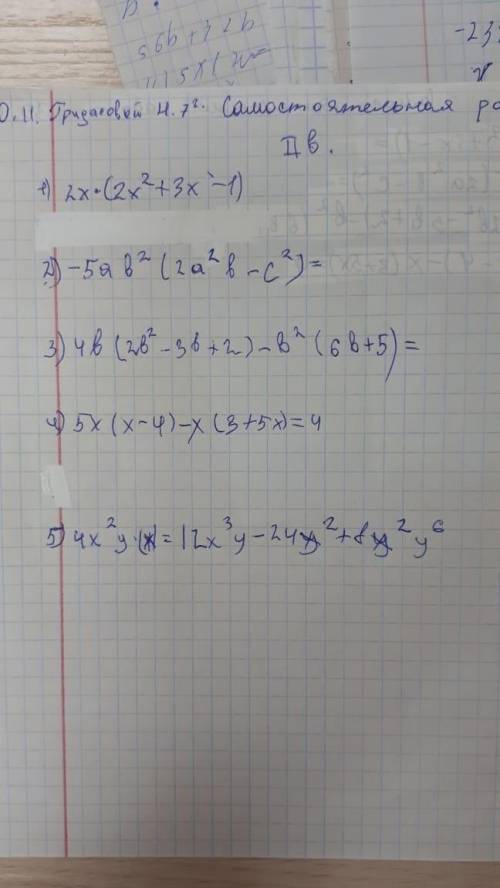 56b+37b
-23
Самостоятельная ра
II в.
1) 2x·(2x²+3x-1)
2) -5ab²(2a²b-c²)=
3) 4b(2b²-3b+2)-b²(6b+5)=
4) 5x(x-4)-x(3+5x)=4
5) 4x²y·(x)=12x³y-24y²+8y²y⁶